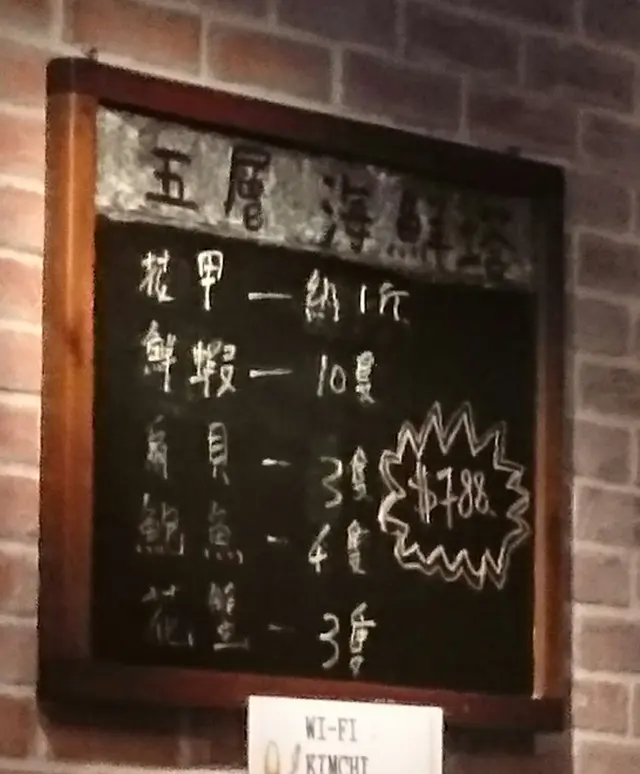 五層 海鮮塔
花甲 — 約1斤
鮮蝦 — 10隻
扇貝 - 3隻
鮑魚 - 4隻
花蟹 - 3隻
$788
WI-FI
KIMCHI